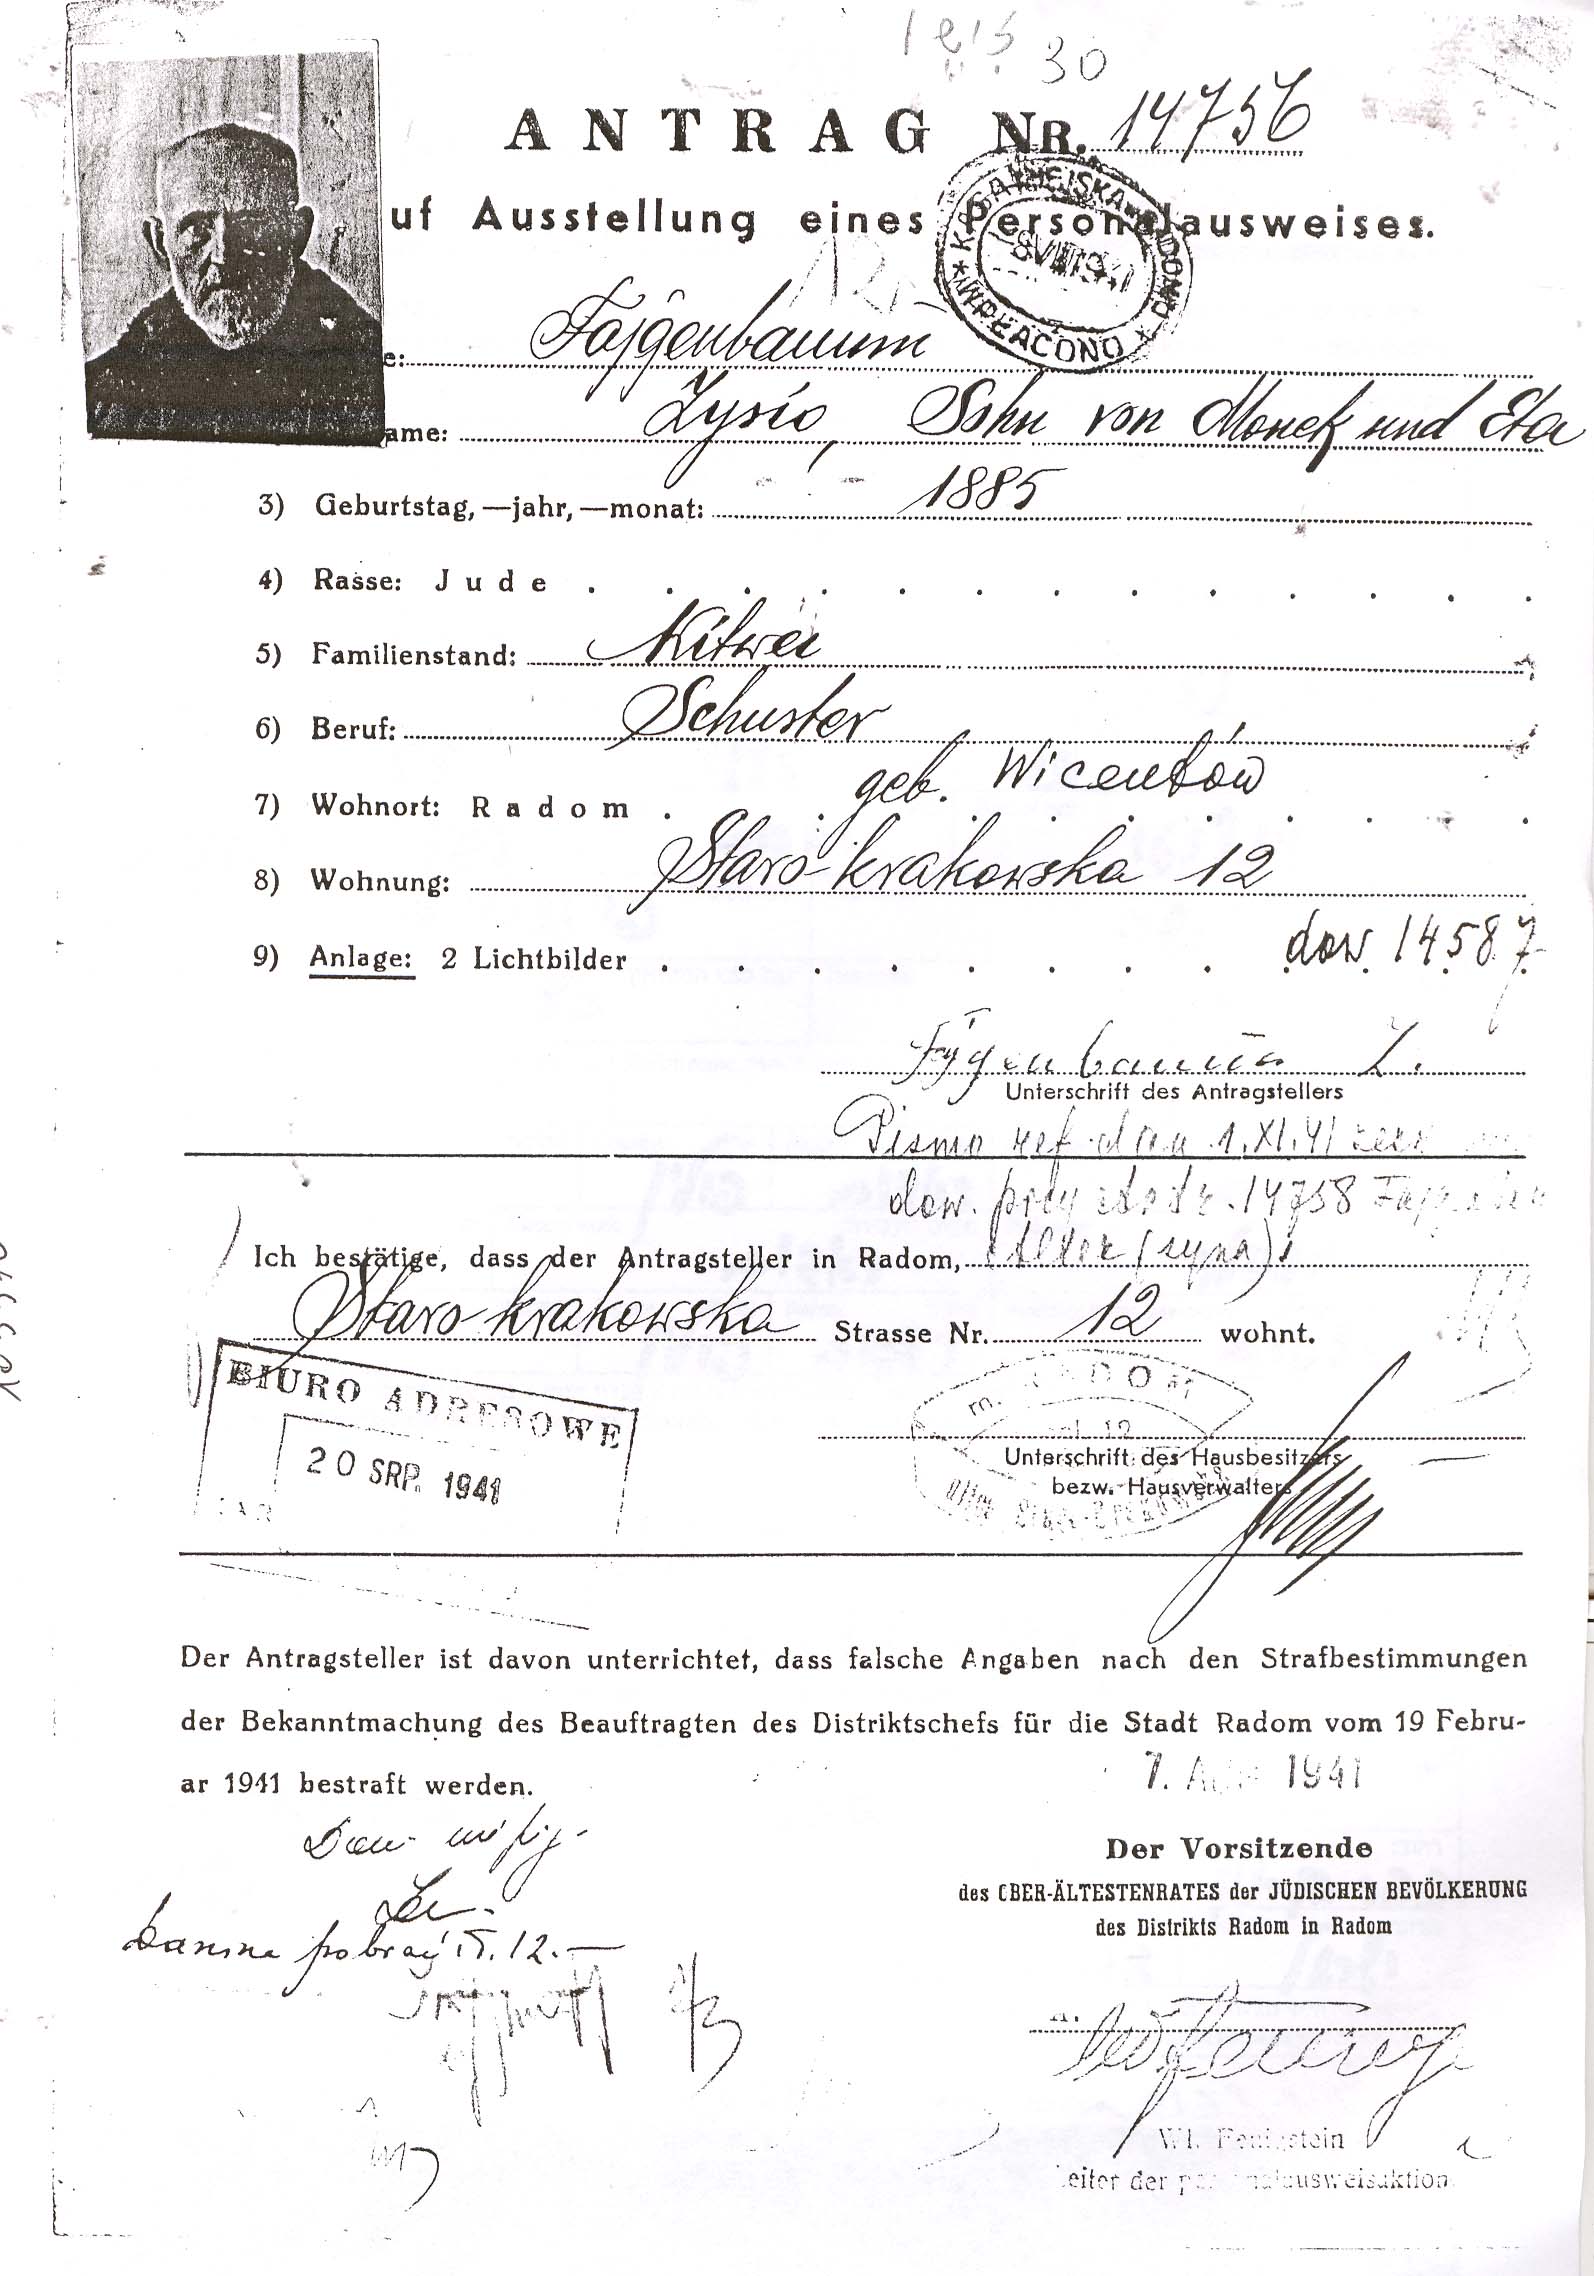 30
ANTRAG NR. 14756
uf Ausstellung eines Personalausweises.
KASA MIEJSKA RADOMIU
WPŁACONO
12.-
e: Fajgenbaum
ame: Zysio, Sohn von Monek und Eta
3) Geburtstag, —jahr, —monat: 1885
4) Rasse: Jude
5) Familienstand: Witwer
6) Beruf: Schuster
geb. Wicentów
7) Wohnort: Radom
8) Wohnung: Staro-krakowska 12
9) Anlage: 2 Lichtbilder
dow. 14587
Fajgenbaum Z.
Unterschrift des Antragstellers
Pismo 1.XI.41
dow. 14758
Ich bestätige, dass der Antragsteller in Radom, (syna)
Staro-krakowska Strasse Nr. 12 wohnt.
BIURO ADRESOWE
20 SRP. 1941
m. RADOM
Unterschrift des Hausbesitzers
bezw. Hausverwalters
Der Antragsteller ist davon unterrichtet, dass falsche Angaben nach den Strafbestimmungen
der Bekanntmachung des Beauftragten des Distriktschefs für die Stadt Radom vom 19 Febru-
ar 1941 bestraft werden.
7. 1941
Der Vorsitzende
des OBER-ÄLTESTENRATES der JÜDISCHEN BEVÖLKERUNG
des Distrikts Radom in Radom
12.—
Wł. Fenigstein
Leiter der personalausweisaktion